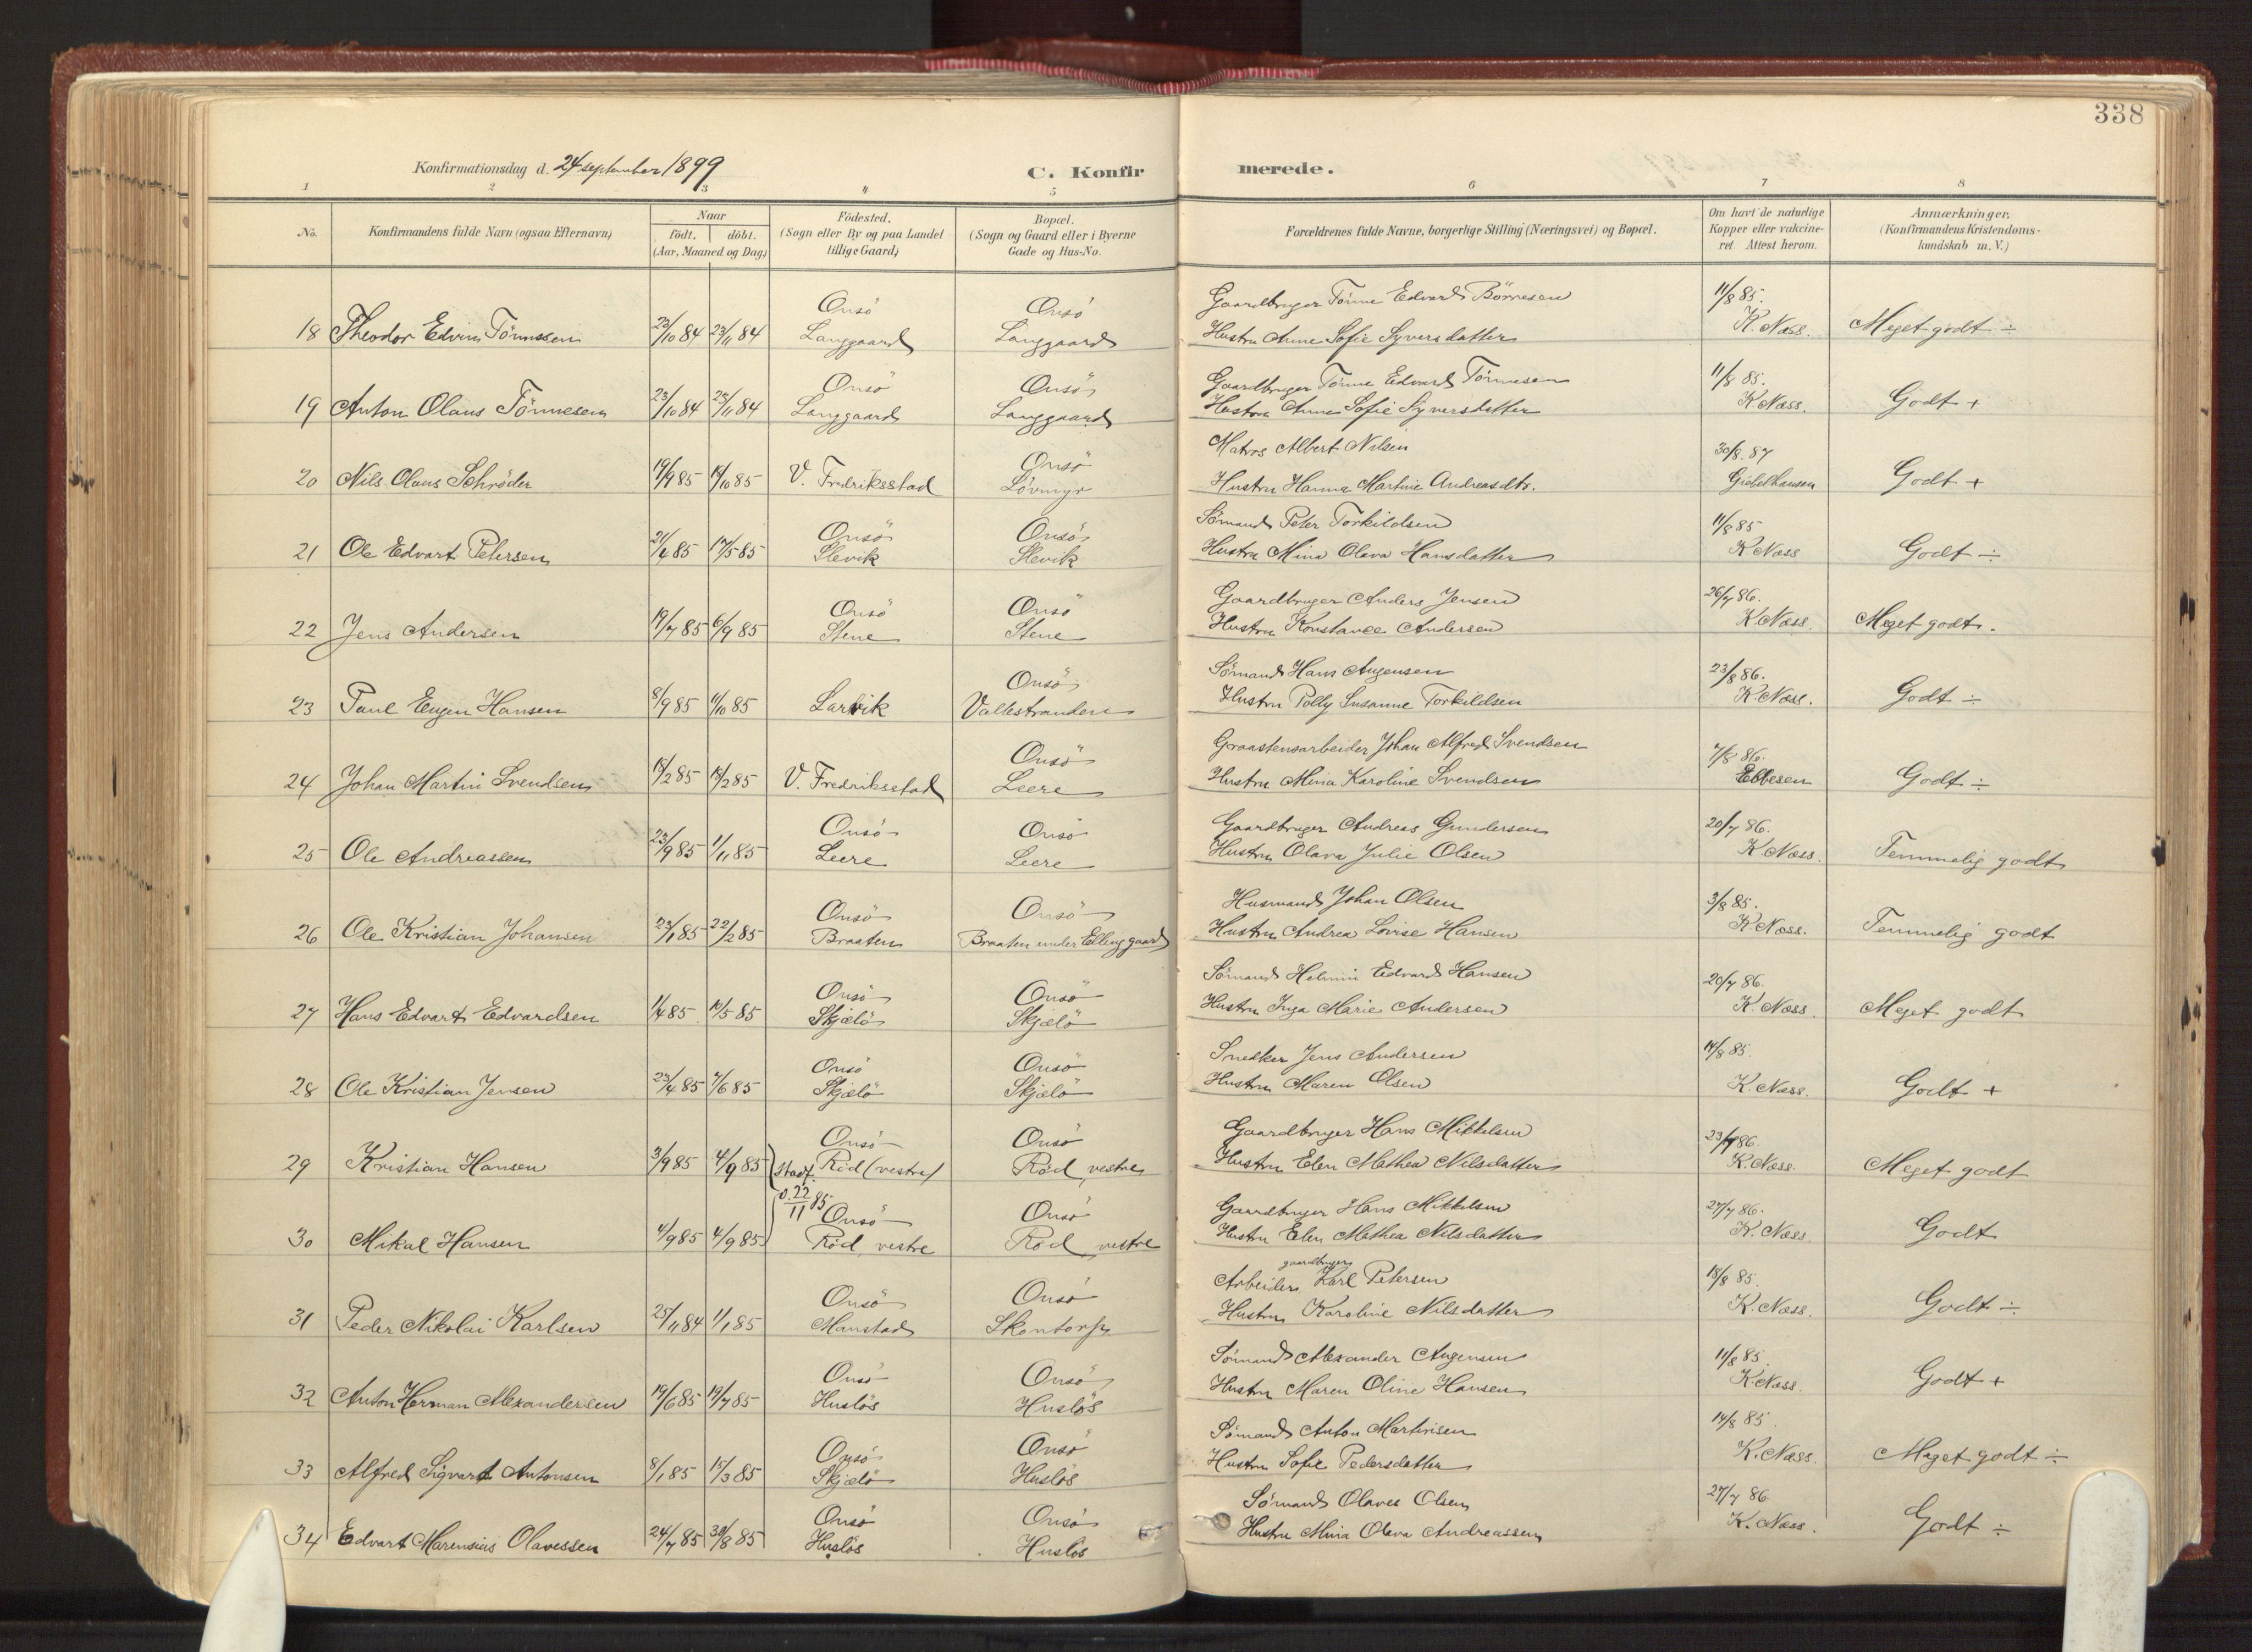 338
Konfirmationsdag d. 24 september 1899
C. Konfirmerede.
1 2 3 4 5 6 7 8
No. Konfirmandens fulde Navn (ogsaa Efternavn) Naar födt. döbt. (Aar, Maaned og Dag) Födested. (Sogn eller By og paa Landet tillige Gaard) Bopæl. (Sogn og Gaard eller i Byerne Gade og Hus-No. Forældrenes fulde Navne, borgerlige Stilling (Næringsvei) og Bopæl. Om havt de naturlige Kopper eller vakcineret. Attest herom. Anmærkninger. (Konfirmandens Kristendomskundskab m. V.)
Onsö Onsö Gaardbruger Tönne Edvard Börresen 11/8 85.
18 Theodor Edvin Tönnesen 23/10 84 23/11 84 Langgaard Langgaard Hustru Anne Sofie Syversdatter K. Næss. Meget godt ÷
Onsö Onsö Gaardbruger Tönne Edvard Tönnesen 11/8 85.
19 Anton Olaus Tönnesen 23/10 84 23/11 84 Langgaard Langgaard Hustru Anne Sofie Syversdatter K. Næss. Godt +
Onsö Matros Albert Nilsen 30/8. 87
20 Nils Olaus Schröder 19/9 85 19/10 85 V. Fredriksstad Lövmyr Hustru Hanna Martine Andreasdtr. Giebelhausen Godt +
Onsö Onsö Sömand Peter Torkildsen 11/8 85
21 Ole Edvart Petersen 21/4 85 17/5 85 Slevik Slevik Hustru Mina Olava Hansdatter K Næss Godt ÷
Onsö Onsö Gaardbruger Anders Jensen 26/7 86.
22 Jens Andersen 19/7 85 6/9 85 Stene Stene Hustru Konstance Andersen K Næss. Meget godt.
Onsö Sömand Hans Augensen 23/8 86.
23 Paul Eugen Hansen 8/9 85 11/10 85 Larvik Vallestranden Hustru Polly Susanne Torkildsen K. Næss. Godt ÷
Onsö Graastensarbeider Johan Alfred Svendsen 7/8 86.
24 Johan Martin Svendsen V. Fredriksstad Leere Hustru Mina Karoline Svendsen Ebbesen Godt ÷
Onsö Onsö Gaardbruger Andreas Gundersen 20/7 86.
25 Ole Andreassen 23/9 85 1/11 85 Leere Leere Hustru Olava Julie Olsen K Næss. Temmelig godt
Onsö Onsö Husmand Johan Olsen 3/8 85.
26 Ole Kristian Johansen 23/1 85 22/2 85 Braaten Braaten under Elleggaard Hustru Andrea Lovise Hansen K. Næss. Temmelig godt
Onsö Onsö Sömand Helmin Edvard Hansen 20/7 86.
27 Hans Edvart Edvardsen 1/4 85 10/5 85 Skjælö Skjælö Hustru Inga Marie Andersen K. Næss. Meget godt
Onsö Onsö Snedker Jens Andersen 14/8 85.
28 Ole Kristian Jensen 23/4 85 7/6 85 Skjælö Skjælö Hustru Maren Olsen K. Næss. Godt +
Onsö Onsö Gaardbruger Hans Mikkelsen 23/7 86.
29 Kristian Hansen 3/9 85 4/9 85 stadf. Röd (vestre) Röd, vestre Hustru Elen Mathea Nilsdatter K. Næss. Meget godt
d. 22/11 85 Onsö Onsö Gaardbruger Hans Mikkelsen 27/7 86.
30 Mikal Hansen 4/9 85 4/9 85 Röd, vestre Röd, vestre Hustru Elen Mathea Nilsdatter K. Næss. Godt
gaardbruger
Onsö Onsö Arbeider Karl Petersen 18/8 85.
31 Peder Nikolai Karlsen 25/11 84 1/1 85 Manstad Skontorp Hustru Karoline Nilsdatter K. Næss. Godt ÷
Onsö Onsö Sömand Alexander Augensen 11/8 85
32 Anton Herman Alexandersen 19/6 85 19/7 85 Huslös Huslös Hustru Maren Oline Hansen K. Næss. Godt +
Onsö Onsö Sömand Anton Martinisen 14/8 85.
33 Alfred Sigvart Antonsen 8/1 85 15/3 85 Skjælö Huslös Hustru Sofie Pedersdatter K. Næss. Meget godt ÷
Onsö Onsö Sömand Olaves Olsen 27/7 86.
34 Edvart Marensius Olavessen 24/7 85 30/8 85 Huslös Huslös Hustru Mina Olava Andreassen K. Næss. Godt ÷